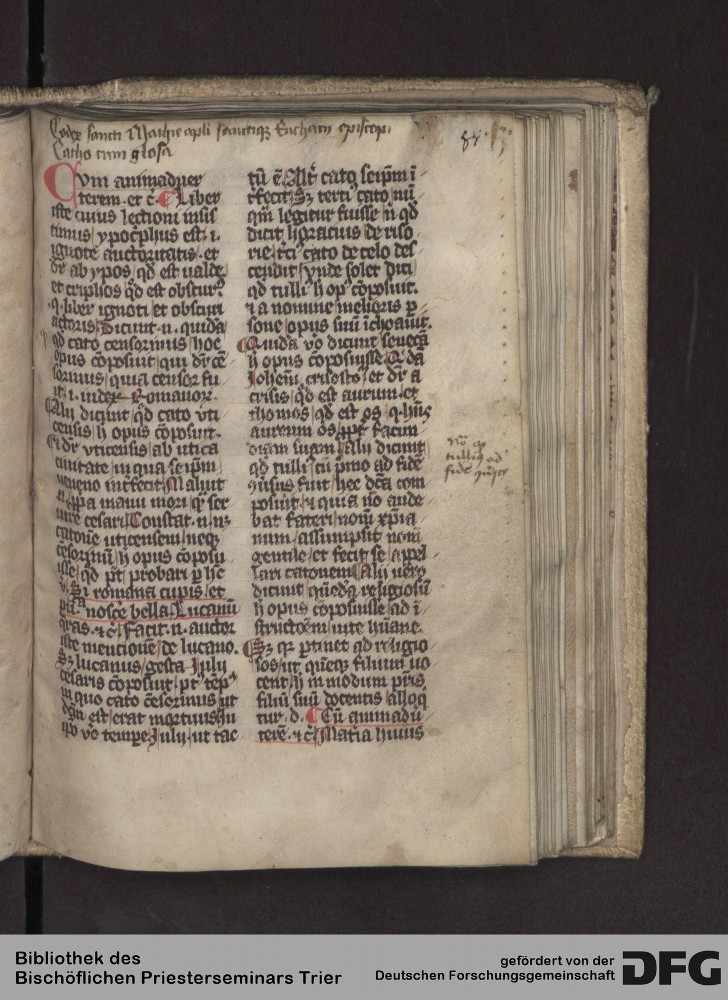 Codex sancti Mathie apli sanctiqz Eucharii epi
Catho cum glosa
84
Cum animaduer
terem · et c̄ · Liber
iste cuius lectioni insis
timus ypoc̄phus est · i ·
ignote auctoritatis · et
dr̄ ab ypos qd̄ est ualde
et criphos qd̄ est obscur᷒
· q · liber ignoti et obscuri
actoris Dicunt · n · quidā
qd̄ cato censorinus hoc
opus cōposuit qui dr̄ cē
sorinus quia censor fu
it · i · iudex Romanor̄
Alij dicūt qd̄ cato vti
censis h̄ opus cōposuit ·
Et dr̄ vticensis ab utica
ciuitate in qua seip̄m
ueneno int̄fecit Maluit
n · ꝓpa manu mori q̄ ser
uire cesari Constat · n · nz
catonē uticensem neqz
cēsorinū h̄ opus cōposu
isse qd̄ pt̄ probari p̄ hc̄
v̄ · Si romana cupis et
nosce bella Lucanū
qras · et c̄ Facit · n · auctor
iste mentionē de lucano ·
Sz lucanus gesta Julij
cesaris cōposuit pt᷒ temp᷒
in quo cato cēsorinus ut
est erat mortuus In
ipo vō tempe Julij ut tac
tū ē Alt̄ cato seip̄m ī
t̄fecit Sz terti᷒ cato nū
qm̄ legitur fuisse n̄ qd̄
dicit horacius de riso
rie tc̄i᷒ cato de celo des
cendit vnde solet dici
qd̄ tulli᷒ h̄ op᷒ cōposuit ·
et a nomine melioris p̄
sone opus suū īchoauit ·
Quidā vō dicunt senecā
h̄ opus cōposuisse Qdā
Johem̄ crisosto᷒ et dr̄ a
crisis qd̄ est aurum et
thomos qd̄ est os · q · hn̄s
aureum os ꝓpt̄ facun
diam suam Alij dicunt
qd̄ tulli᷒ cū pmo ad fidē
ꝯuersus fuit hec dc̄a com
posuit et quia nō aude
bat fateri nom̄ xp̄ia
num assumpsit nom̄
gentile et fecit se appel
lari catonem Alij uero
dicunt quēdā religiosū
h̄ opus cōposuisse ad ī
structōem uite hūane ·
Sz qr ptinet ad religio
sos ut quēqz filium uo
cent h̄ in modum pris
filiū suū docentis alloq
tur · d · Cū animadū
terē · et c̄ Mat̄ia huius
nō qd̄
tulli᷒ ad
fidē
Bibliothek des
Bischöflichen Priesterseminars Trier
gefördert von der
Deutschen Forschungsgemeinschaft
DFG